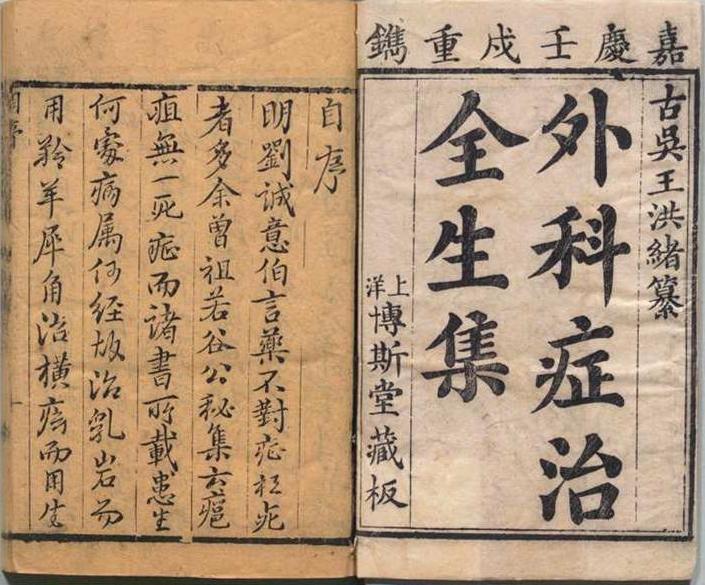 嘉慶壬戌重鐫
古吳王洪緒纂
外科症治
全生集
上洋博斯堂藏板
自序
明劉誠意伯言藥不對症枉死
者多余曾祖若谷公秘集云癰
疽無一死症而諸書所載患生
何處病属何經故治乳岩而
用羚羊犀角治橫痃而用生
自序